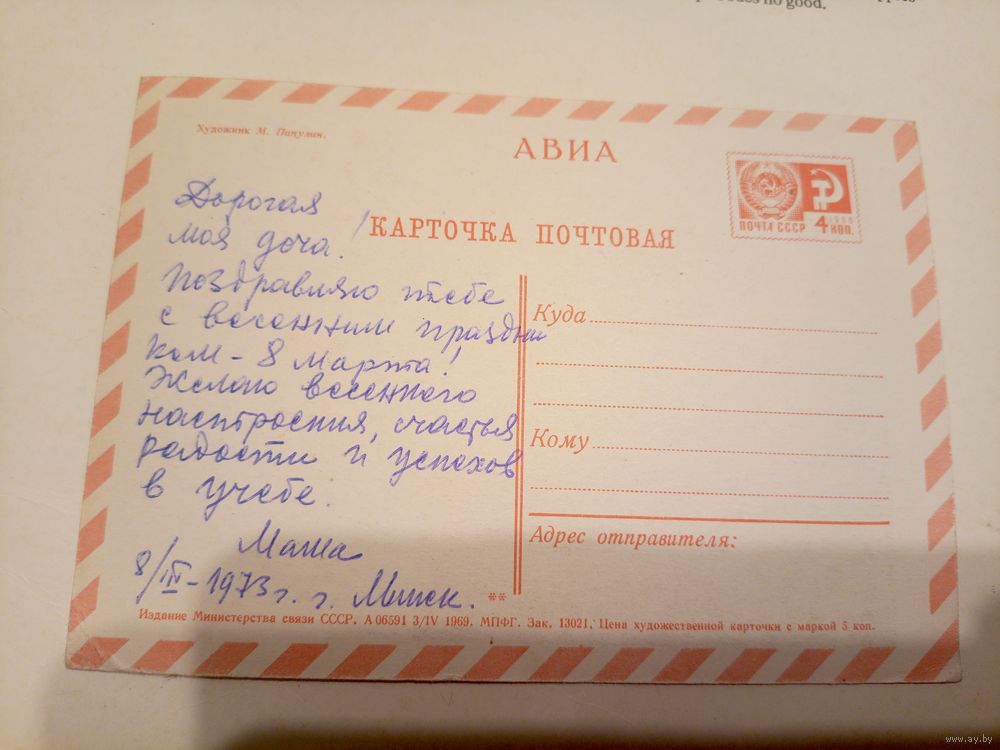 no good.
Художник М. Папулин.
АВИА
КАРТОЧКА ПОЧТОВАЯ
ПОЧТА СССР 4 КОП.
1966
Дорогая
моя доча!
Поздравляю тебе
с весенним праздни
ком - 8 Марта!
Желаю весеннего
настроения, счастья
радости и успехов
в учебе.
Маша
8/III-1973 г. г. Минск.
Куда
Кому
Адрес отправителя:
**
Издание Министерства связи СССР. А 06591 3/IV 1969. МПФГ. Зак. 13021. Цена художественной карточки с маркой 5 коп.
www.ay.by